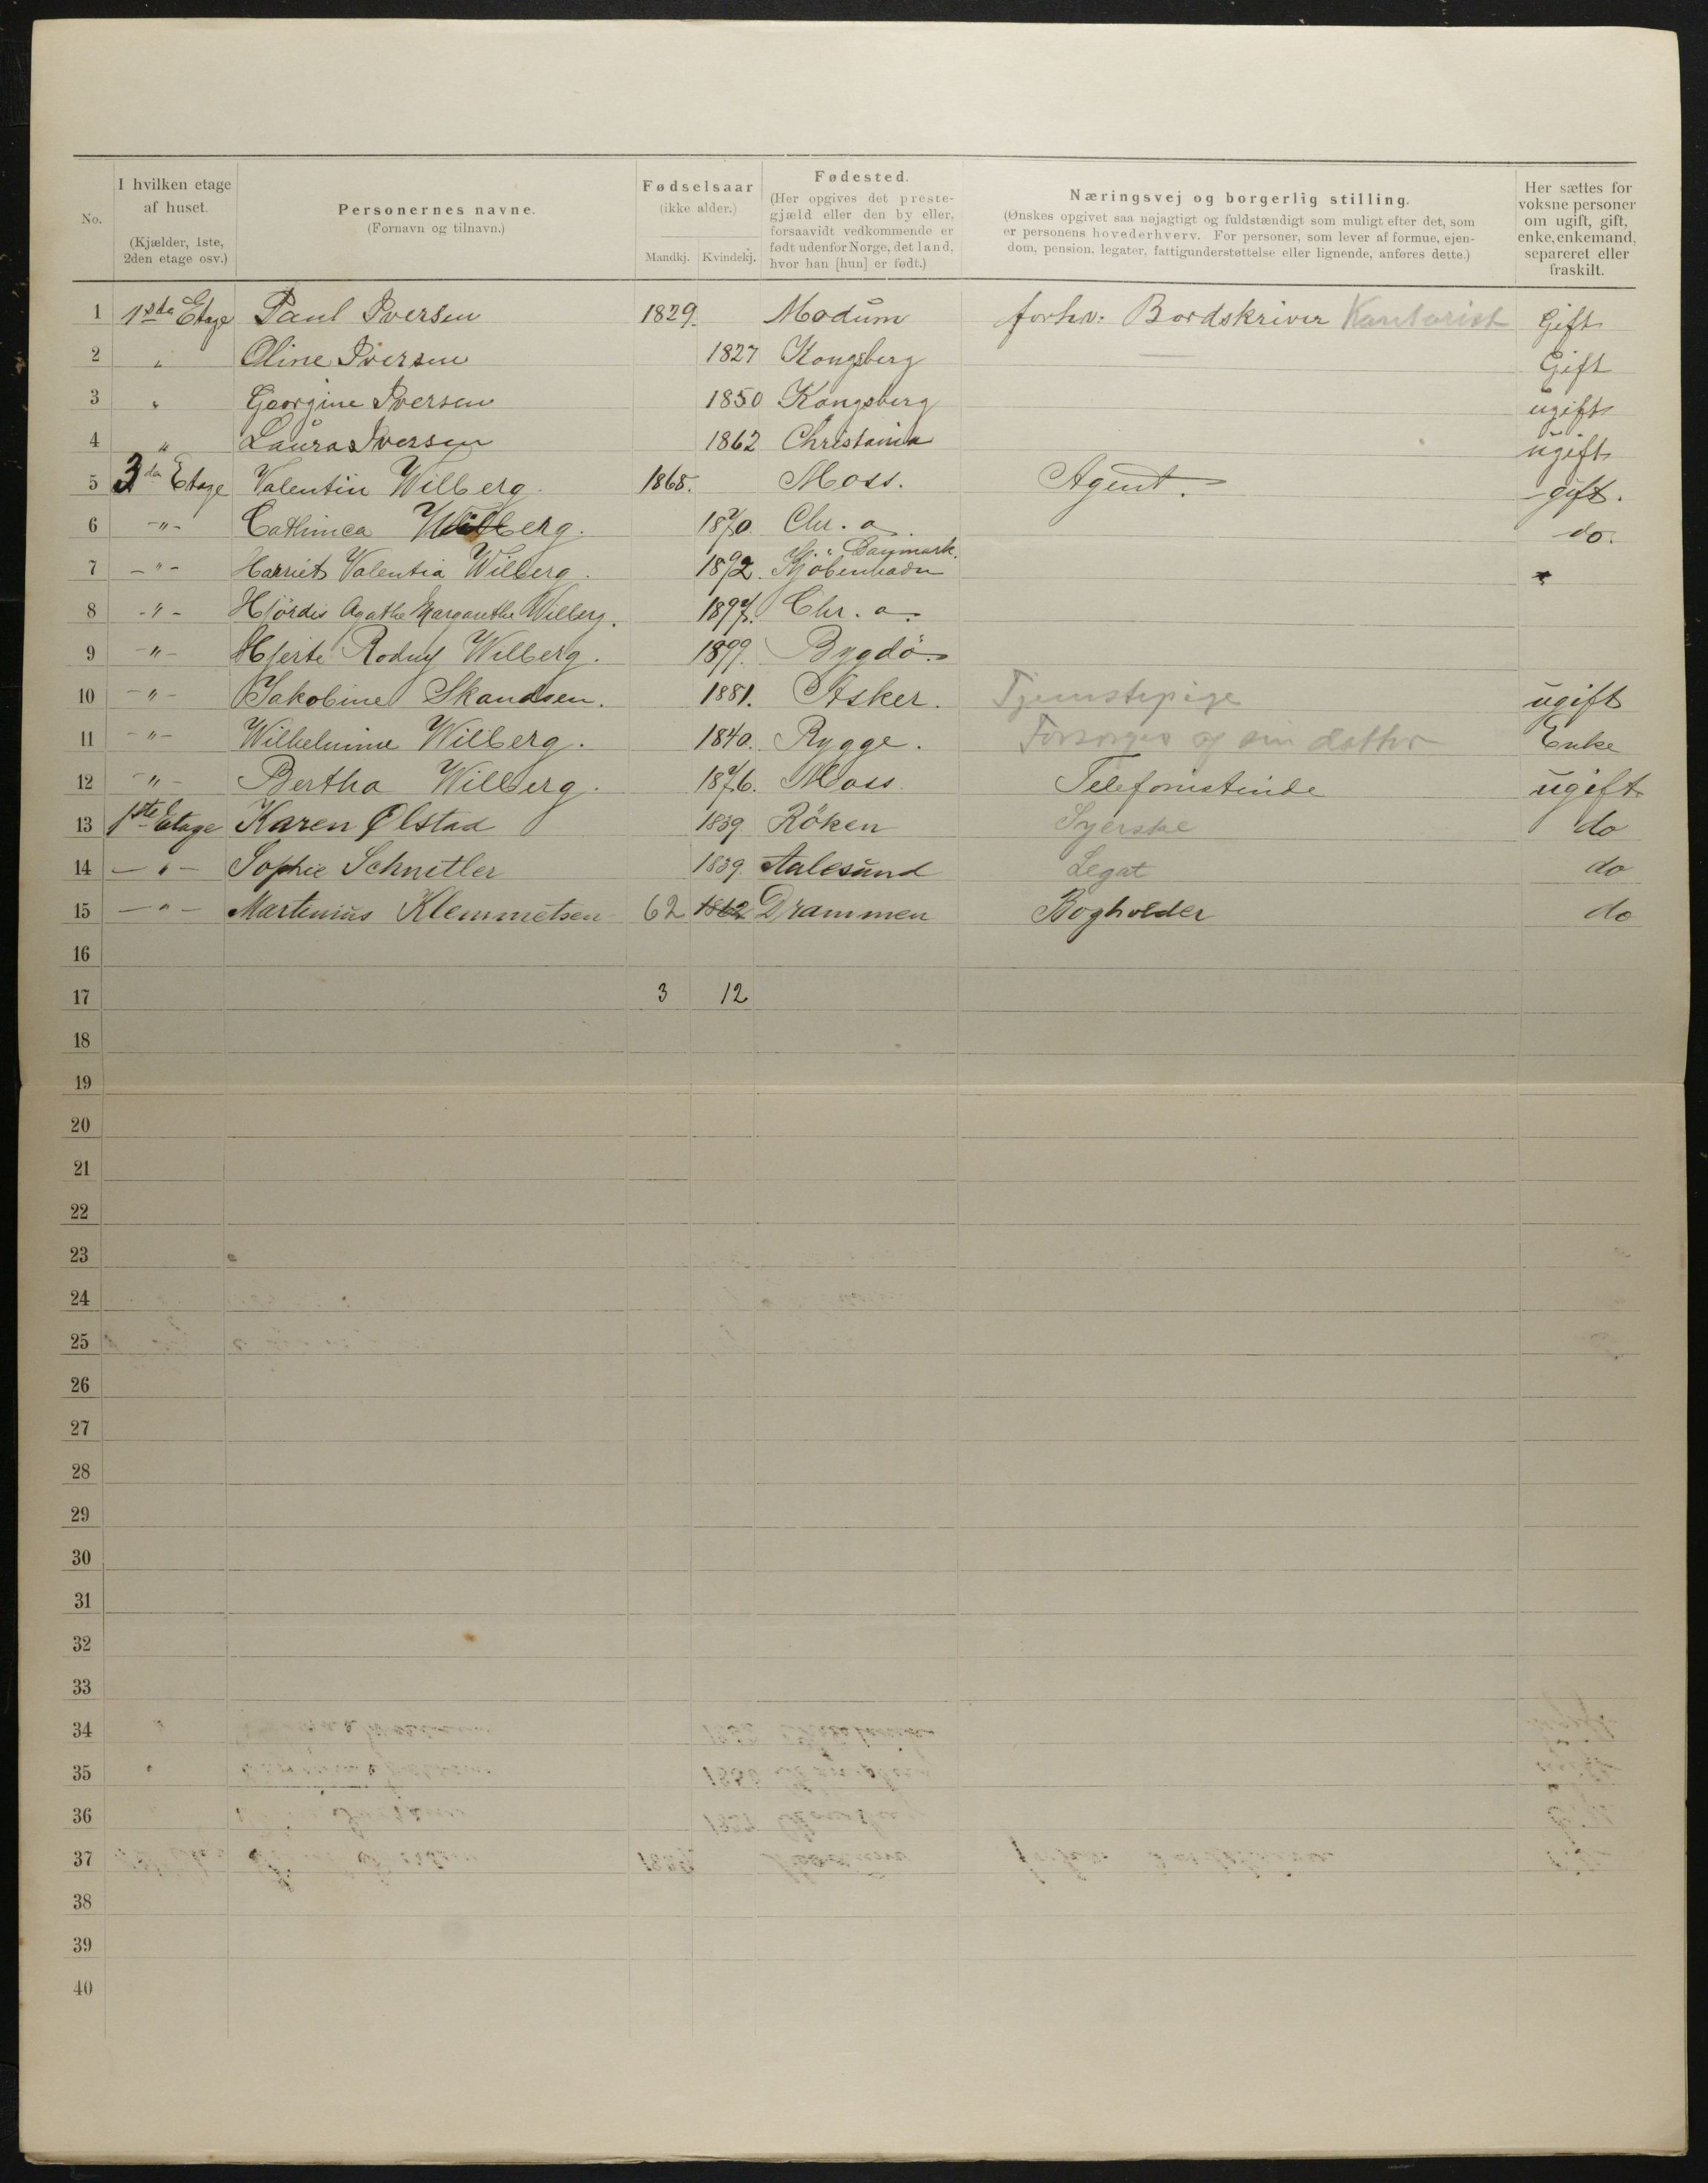 No.
I hvilken etage af huset.
(Kjælder, 1ste, 2den etage osv.)
Personernes navne.
(Fornavn og tilnavn.)
Fødselsaar
(ikke alder.)
Mandkj. Kvindekj.
Fødested.
(Her opgives det preste-
gjæld eller den by eller,
forsaavidt vedkommende er
født udenfor Norge, det land,
hvor han [hun] er født.)
Næringsvej og borgerlig stilling.
(Ønskes opgivet saa nøjagtigt og fuldstændigt som muligt efter det, som
er personens hovederhverv. For personer, som lever af formue, ejen-
dom, pension, legater, fattigunderstøttelse eller lignende, anføres dette.)
Her sættes for
voksne personer
om ugift, gift,
enke, enkemand,
separeret eller
fraskilt.
1 1ste Etage Paul Iversen 1829. Modum forhv. Bordskriver Kontorist Gift
2 " Oline Iversen 1827 Kongsberg — Gift
3 " Georgine Iversen 1850 Kongsberg ugift
4 " Laura Iversen 1862 Christania ugift
5 3de Etage Valentin Wilberg. 1868. Moss. Agent. gift.
6 -"- Cathinca Wilberg. 1870. Chr. a. do.
7 -"- Harriet Valentia Wilberg. 1892. Kjøbenhavn Danmark.
8 -"- Hjördis Agathe Margarethe Wilberg. 1897. Chr. a.
9 -"- Hjerte Rodny Wilberg. 1899. Bygdö.
10 -"- Jakobine Skandsen. 1881. Asker. Tjenestepige ugift
11 -"- Wilhelmine Wilberg. 1840. Rygge. Forsørges af sin datter Enke
12 -"- Bertha Wilberg. 1876. Moss. Telefonistinde ugift
13 1ste Etage Karen Ølstad 1839 Röken Syerske do
14 -"- Sophie Schnitler 1839. Aalesund Legat do
15 -"- Martinius Klemmetsen 62 1862 Drammen Bogholder do
16
17 3 12
18
19
20
21
22
23
24
25
26
27
28
29
30
31
32
33
34
35
36
37
38
39
40